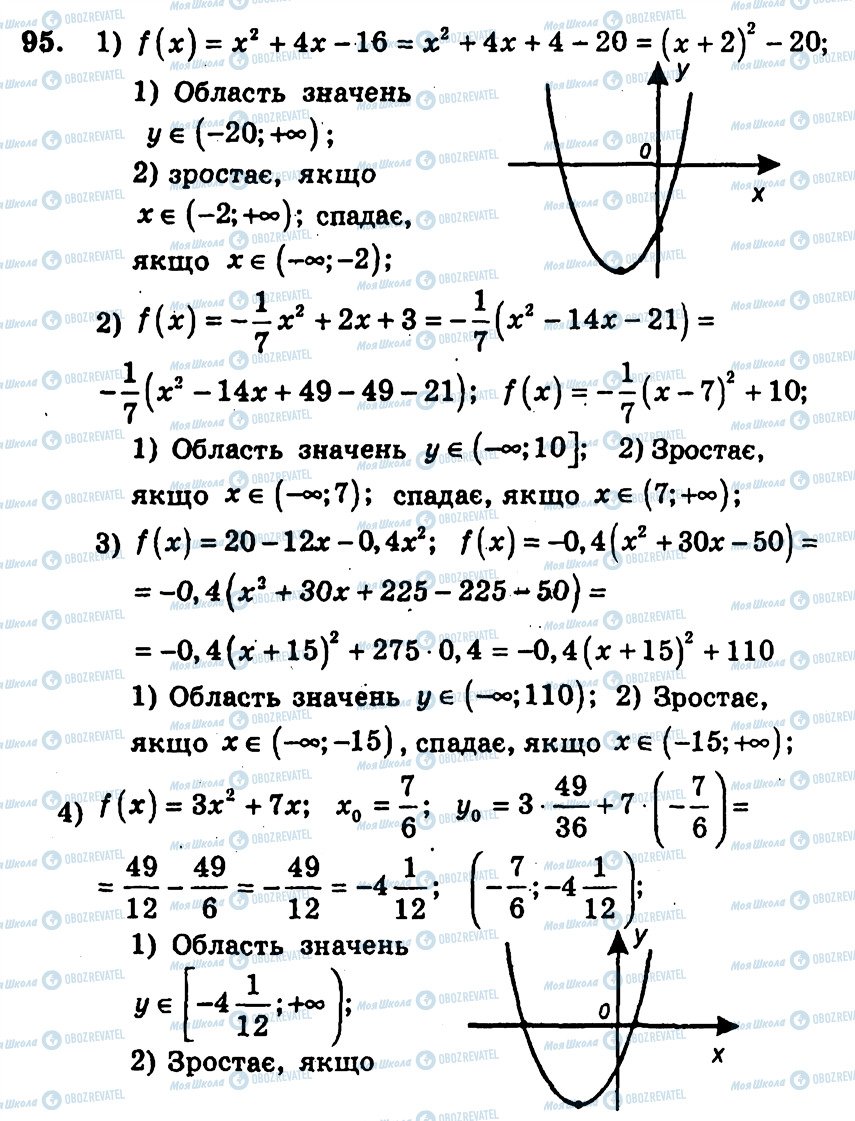 95. 1) f(x) = x² + 4x – 16 = x² + 4x + 4 – 20 = (x + 2)² – 20;
1) Область значень
y ∈ (–20; +∞);
2) зростає, якщо
x ∈ (–2; +∞); спадає,
якщо x ∈ (–∞; –2);
y
0
x
2) f(x) = –1/7 x² + 2x + 3 = –1/7 (x² – 14x – 21) =
–1/7 (x² – 14x + 49 – 49 – 21); f(x) = –1/7 (x – 7)² + 10;
1) Область значень y ∈ (–∞; 10]; 2) Зростає,
якщо x ∈ (–∞; 7); спадає, якщо x ∈ (7; +∞);
3) f(x) = 20 – 12x – 0,4x²; f(x) = –0,4(x² + 30x – 50) =
= –0,4(x² + 30x + 225 – 225 – 50) =
= –0,4(x + 15)² + 275 · 0,4 = –0,4(x + 15)² + 110
1) Область значень y ∈ (–∞; 110); 2) Зростає,
якщо x ∈ (–∞; –15), спадає, якщо x ∈ (–15; +∞);
4) f(x) = 3x² + 7x; x₀ = 7/6; y₀ = 3 · 49/36 + 7 · (–7/6) =
= 49/12 – 49/6 = –49/12 = –4 1/12; (–7/6; –4 1/12);
1) Область значень
y ∈ [–4 1/12; +∞);
2) Зростає, якщо
y
0
x
МояШкола OBOZREVATEL